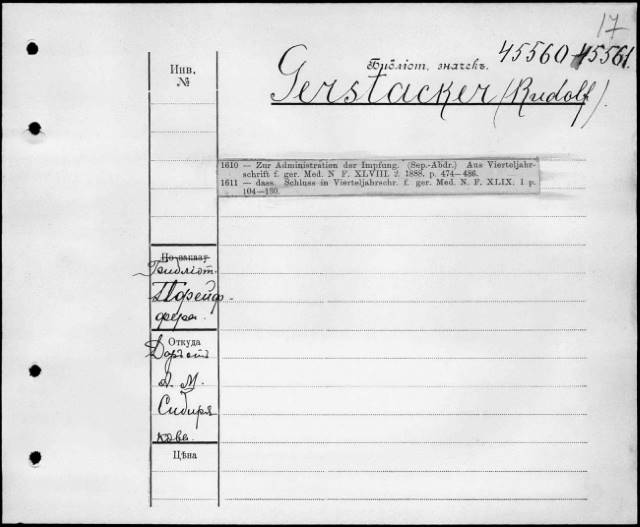 17
45560-45561
Инв.
№
Библіот. значекъ.
Gerstacker (Rudolf).
1610 — Zur Administration der Impfung. (Sep.-Abdr.) Aus Vierteljahr-
schrift f. ger. Med. N F. XLVIII 2. 1888. p. 474—486.
1611 — dass. Schluss in Vierteljahrschr. f. ger. Med. N. F. XLIX. 1 p.
104—130.
Библіот.
Пфейф-
фера.
Откуда
А. М.
Сибиря
кова.
Цѣна